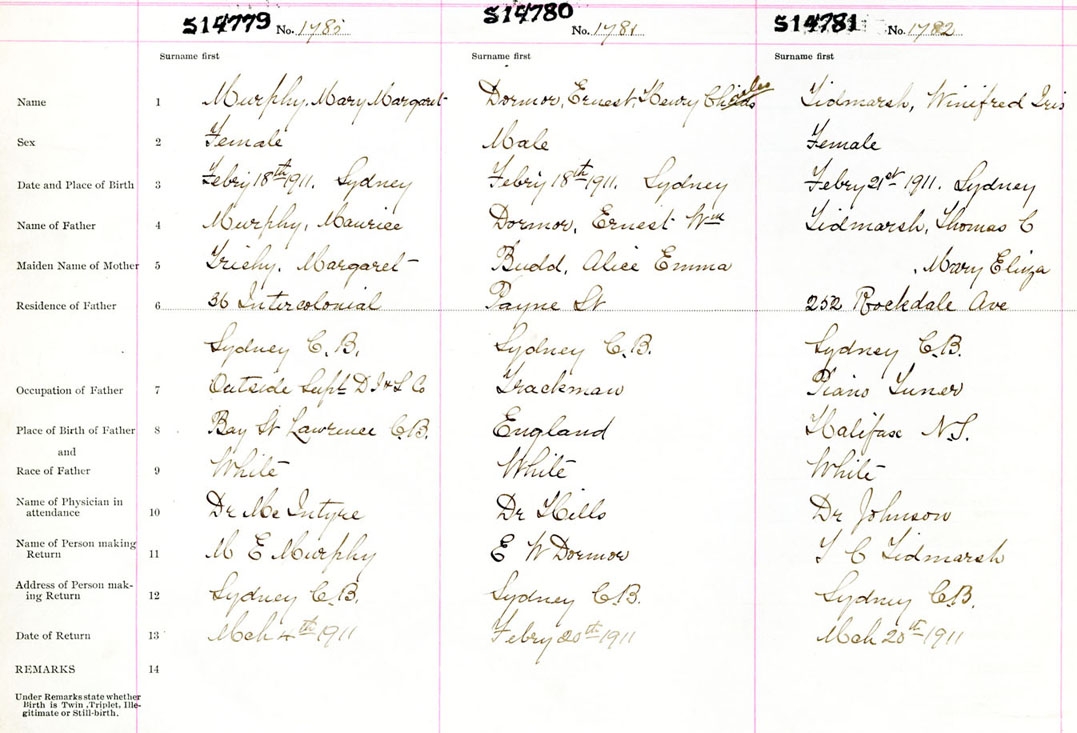 S14779 No. 1780 S14780 No. 1781 S14781 No. 1782
Surname first Surname first Surname first
Name 1 Murphy, Mary Margaret Dormor, Ernest Henry Charles Tidmarsh, Winifred Iris
Sex 2 Female Male Female
Date and Place of Birth 3 Febry 18th 1911. Sydney Febry 18th 1911. Sydney Febry 21st 1911. Sydney
Name of Father 4 Murphy, Maurice Dormor, Ernest Wm Tidmarsh, Thomas C
Maiden Name of Mother 5 Margaret Budd, Alice Emma , Mary Eliza
Residence of Father 6 36 Intercolonial Payne St 252 Rockdale Ave
Sydney C.B. Sydney C.B. Sydney C.B.
Occupation of Father 7 Outside Supt D I & S Co Trackman Piano Tuner
Place of Birth of Father 8 Bay St Lawrence C.B. England Halifax N.S.
and
Race of Father 9 White White White
Name of Physician in
attendance 10 Dr McIntyre Dr Hills Dr Johnson
Name of Person making
Return 11 M E Murphy E W Dormor T C Tidmarsh
Address of Person mak-
ing Return 12 Sydney C.B. Sydney C.B. Sydney C.B.
Date of Return 13 Mch 4th 1911 Febry 20th 1911 Mch 20th 1911
REMARKS 14
Under Remarks state whether
Birth is Twin, Triplet, Ille-
gitimate or Still-birth.